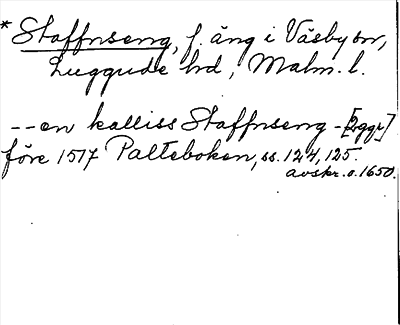 * Staffnseng, f. äng i Väsby sn,
Luggude hd, Malm. l.
-- en kalliss Staffnseng - [2 ggr]
före 1517 Palteboken, ss. 124, 125.
avskr. o. 1650.